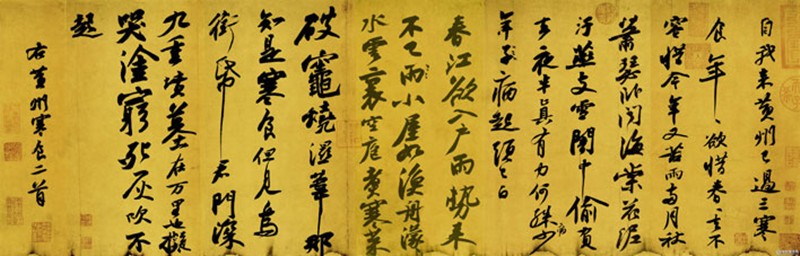 自我来黄州已過三寒
食年〻欲惜春〻去不
容惜今年又苦雨兩月秋
蕭瑟卧聞海棠花泥
汙燕支雪闇中偷負
去夜半真有力何殊病少
年子病起頭已白
春江欲入户雨勢来
不已雨小屋如漁舟濛〻
水雲裏空庖煮寒菜
破竈燒濕葦那
知是寒食但見烏
銜帋君門深
九重墳墓在万里也擬
哭塗窮死灰吹不
起
右黄州寒食二首